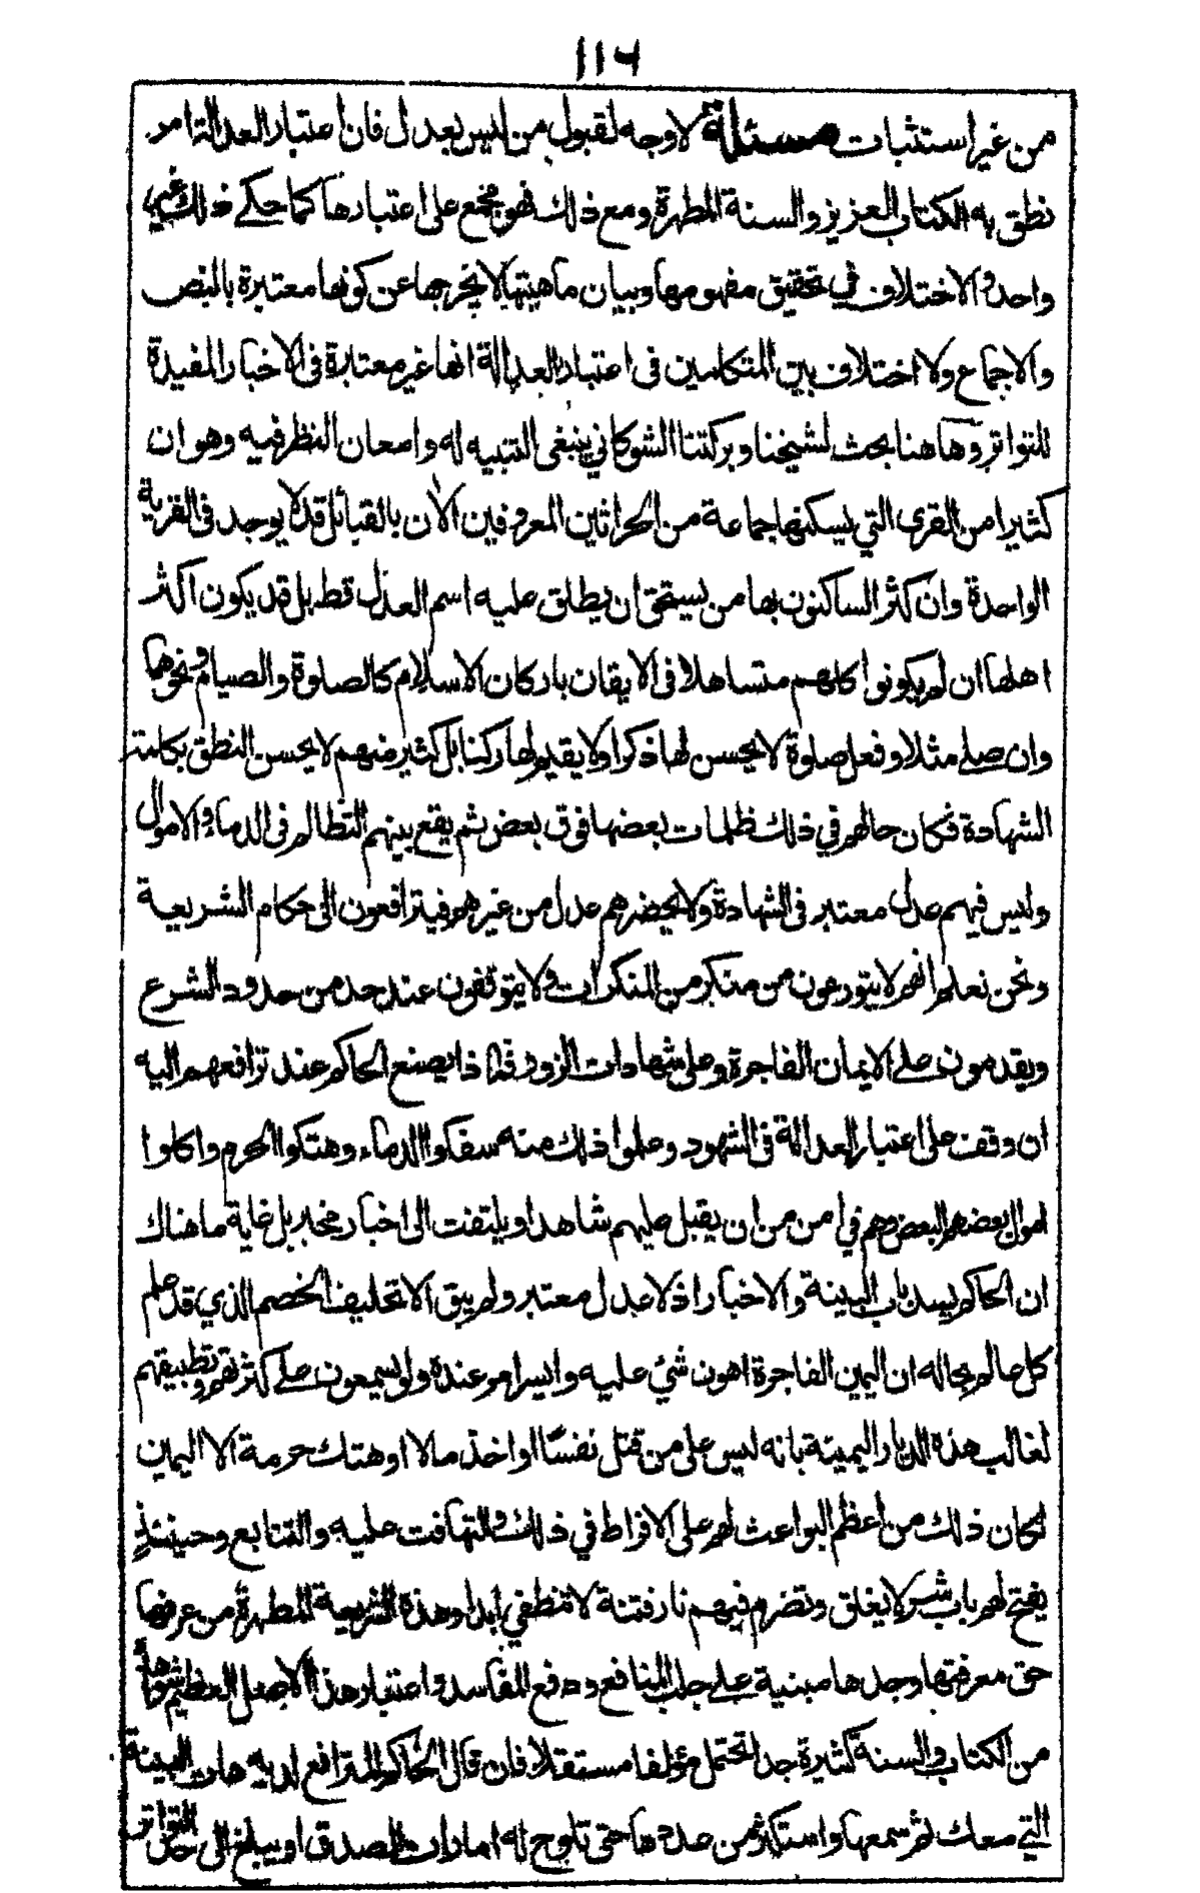 ١١٦
من غير استثبات مسئلة لا وجه لقبول من ليس بعدل فان اعتبار العدالة امر
نطق به الكتاب العزيز والسنة المطهرة ومع ذلك فهو مجمع على اعتبارها كما حكى ذلك غير
واحد والاختلاف في تحقيق مفهومها وبيان ماهيتها لا يخرجها عن كونها معتبرة بالنص
والاجماع ولا اختلاف بين المتكلمين فى اعتبار العدالة انها غير معتبرة فى الاخبار المفيدة
للتواتر وهاهنا بحث لشيخنا وبركتنا الشوكاني ينبغى التنبيه له وامعان النظر فيه وهو ان
كثيرا من القرى التي يسكنها جماعة من الحراثين المعروفين الآن بالقبائل قد لا يوجد فى القرية
الواحدة وان كثر الساكنون بها من يستحق ان يطلق عليه اسم العدل قط بل قد يكون اكثر
اهلها ان لم يكونوا كلهم متساهلا فى الايقان باركان الاسلام كالصلوة والصيام ونحوها
وان صلى مثلا وفعل صلوة لا يحسن لها ذكرا ولا يقيم لها ركنا بل كثير منهم لا يحسن النطق بكلمة
الشهادة فكان حالهم في ذلك ظلمات بعضها فوق بعض ثم يقع بينهم التظالم فى الدماء والاموال
وليس فيهم عدل معتبر فى الشهادة ولا يحضرهم عدل من غيرهم فيترافعون الى حكام الشريعة
ونحن نعلم انهم لا يتورعون من منكر من المنكرات ولا يتوقفون عند حد من حدود الشرع
ويقدمون على الايمان الفاجرة وعلى شهادات الزور فماذا يصنع الحاكم عند ترافعهم اليه
ان وقف على اعتبار العدالة فى الشهود وعلموا ذلك منه سفكوا الدماء وهتكوا الحرم واكلوا
اموال بعضهم البعض وهم في امن من ان يقبل عليهم شاهد او يلتفت الى اخبار مخبر بل غاية ما هناك
ان الحاكم يسد باب البينة والاخبار اذ لا عدل معتبر ولم يبق الا تحليف الخصم الذي قد علم
كل عالم بحاله ان اليمين الفاجرة اهون شئ عليه وايسر امر عنده ولو يسمعون على كثرتهم وتطبيقهم
لغالب هذه الديار اليمينة بانه ليس على من قتل نفسًا او اخذ مالا او هتك حرمة الا اليمين
لكان ذلك من اعظم البواعث لهم على الافراط في ذلك والتهافت عليه والتتابع وحينئذٍ
يفتح لهم باب شر لا يغلق وتضرم فيهم نار فتنة لا تنطفي ابدا وهذه الشريعة المطهرة من عرفها
حق معرفتها وجدها مبنية على جلب المنافع ودفع المفاسد واعتبار هذا الاصل العظيم شواهدها
من الكتاب والسنة كثيرة جدا تحتمل مؤلفا مستقلا فان قال الحاكم للمترافع لديه هات البينة
التي معك ثم سمعها واستكثر من عددها حتى تلوح له امارات الصدق او يبلغ الى حد التواتر